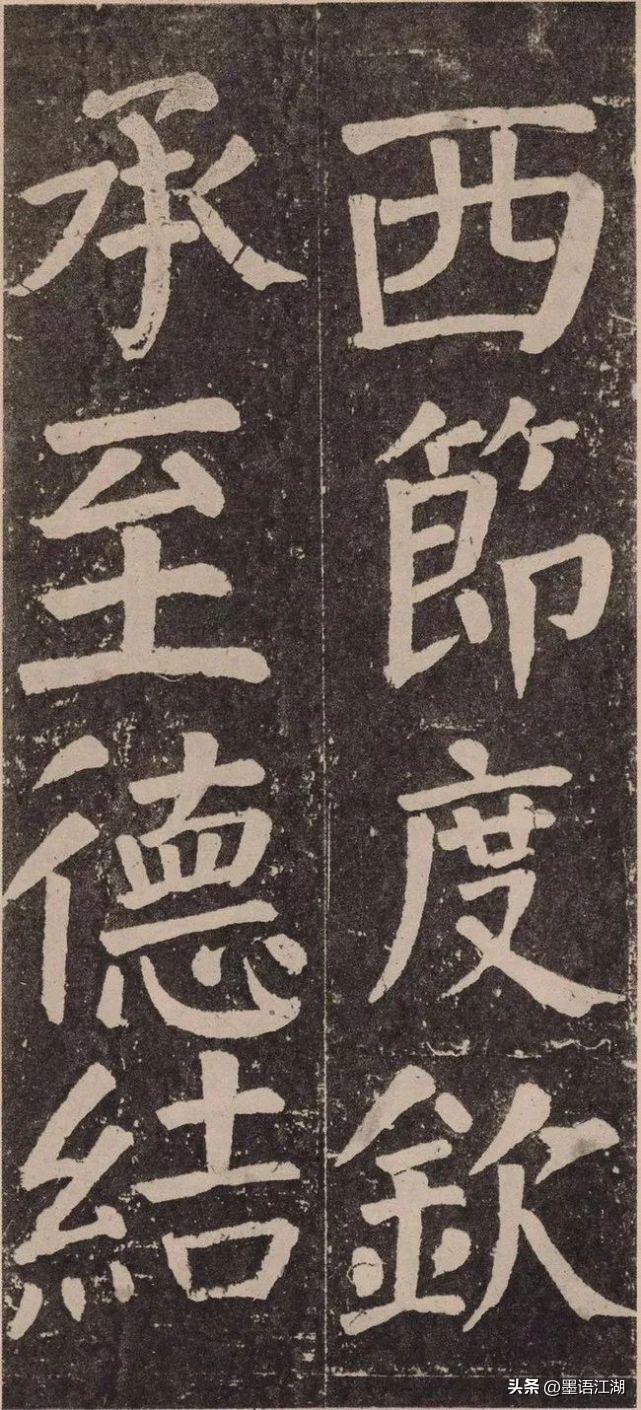 西節度欽
承至德結
头条@墨语江湖